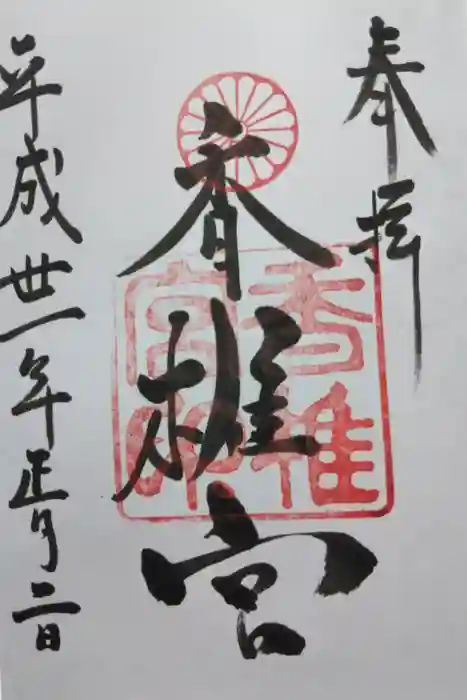 奉拝
香椎宮
香椎宮印
平成廿一年正月二日